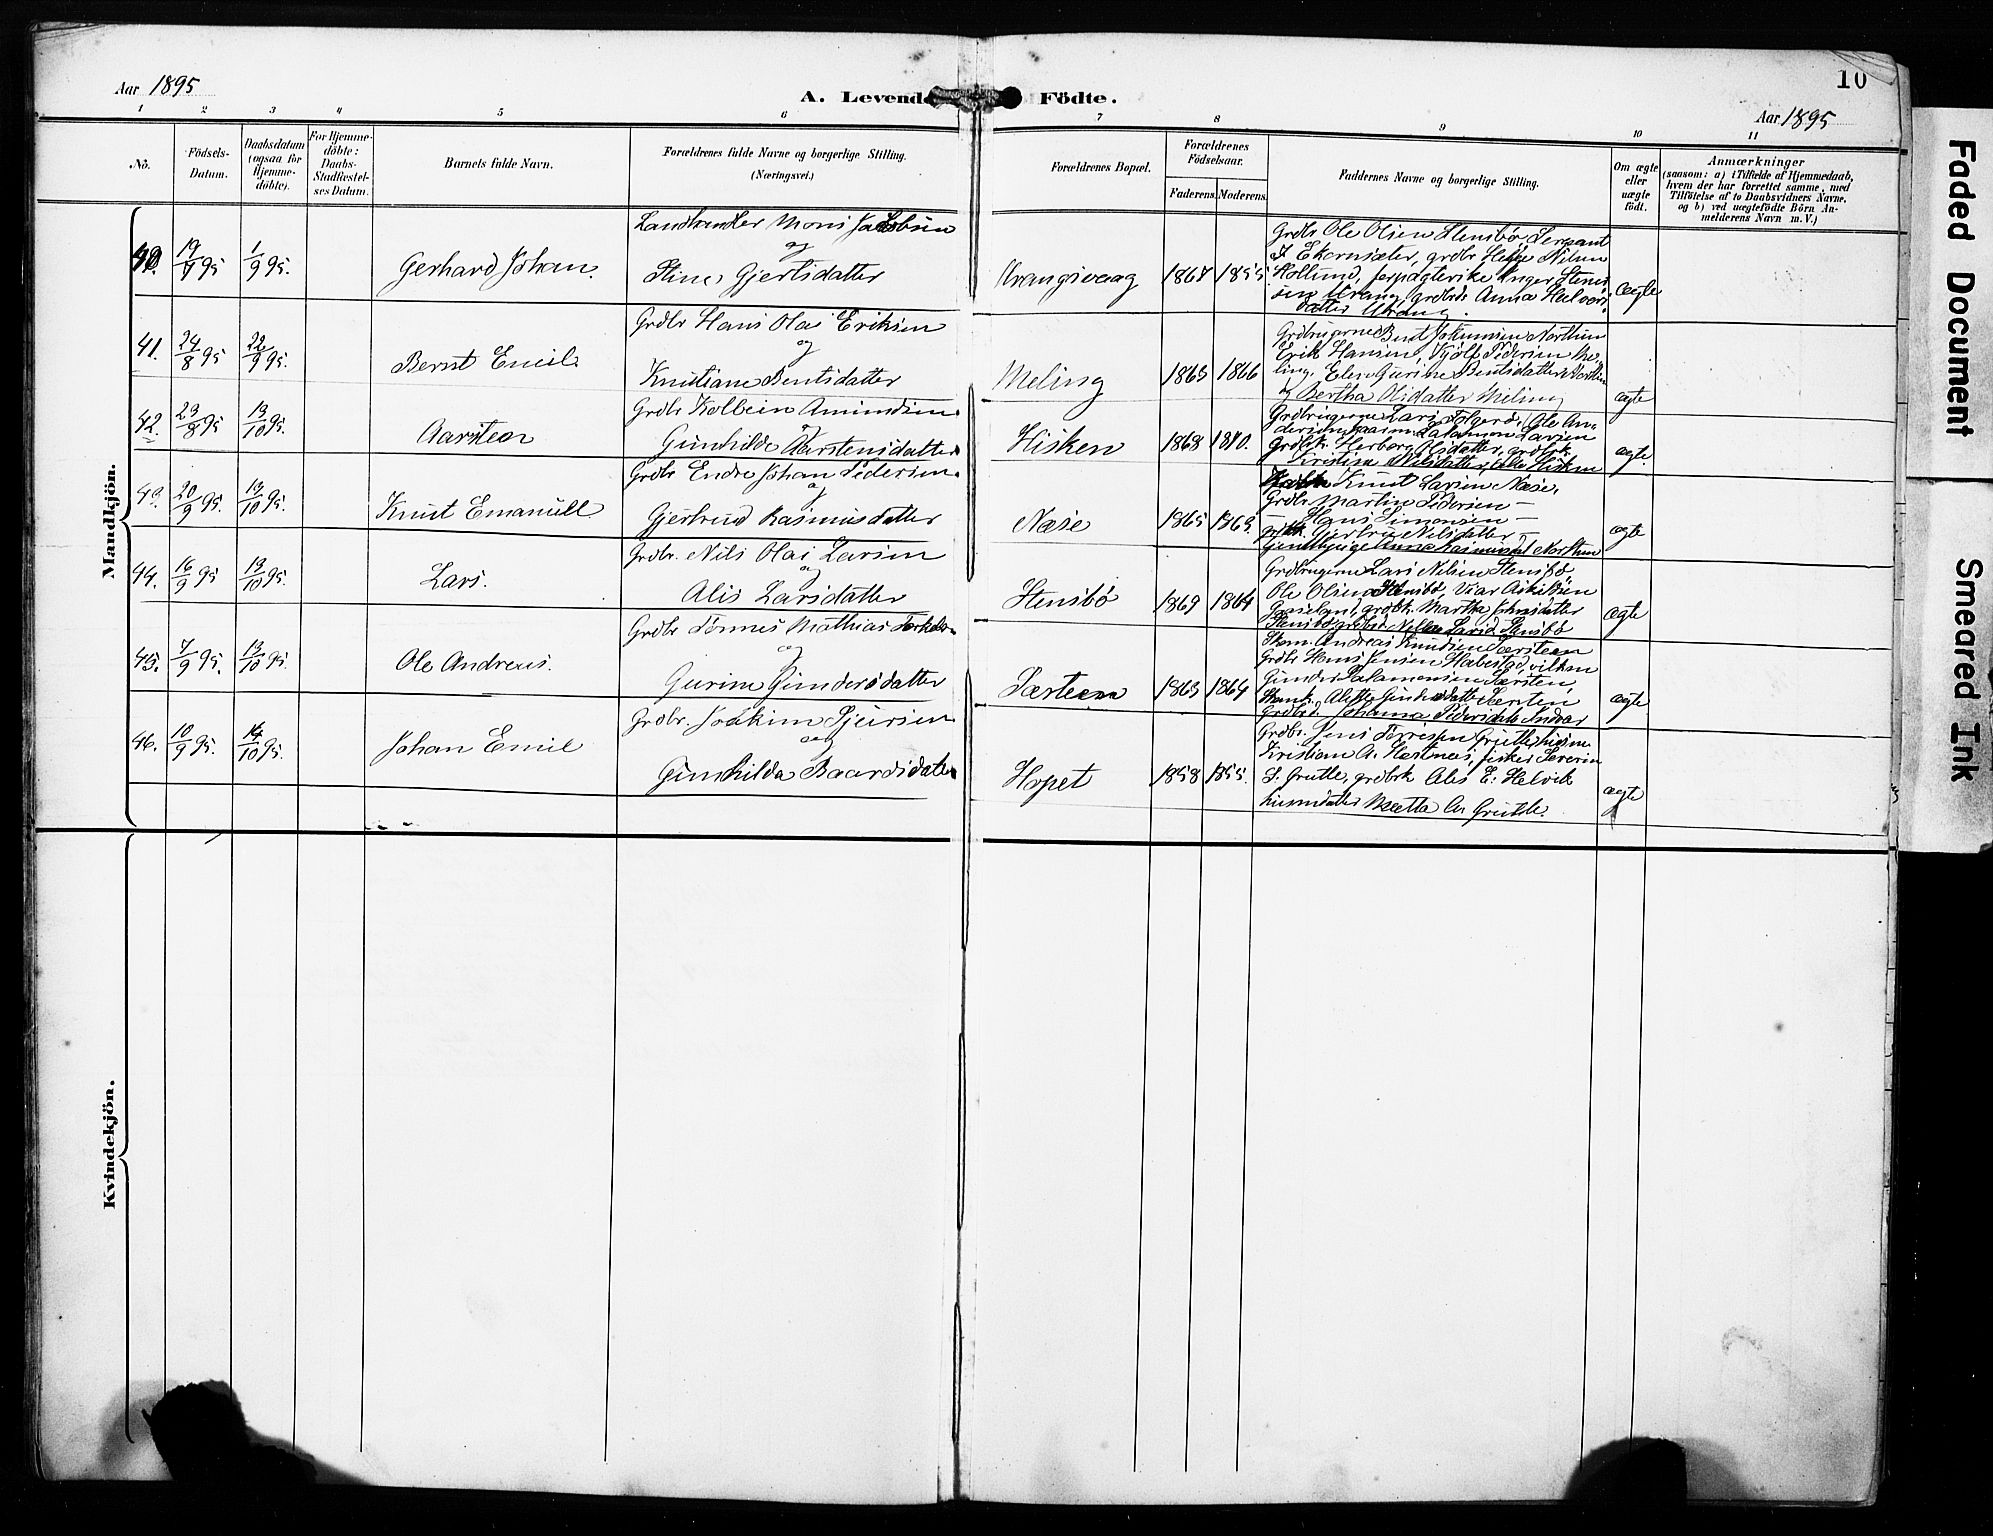 Aar 1895
A. Levende Födte.
10
Aar 1895
1 2 3 4 5 6 7 8 9 10 11
No.
Födsels-Datum.
Daabsdatum (ogsaa for Hjemme-döbte).
For Hjemme-döbte: Daabs-Stadfæstel-ses Datum.
Barnets fulde Navn.
Forældrenes fulde Navne og borgerlige Stilling. (Næringsvei.)
Forældrenes Bopæl.
Forældrenes Födselsaar.
Faderens. Moderens.
Faddernes Navne og borgerlige Stilling.
Om ægte eller uægte födt.
Anmærkninger
(saasom: a) i Tilfælde af Hjemmedaab, hvem der har forrettet samme, med Tilföielse af to Daabsvidners Navne, og b) ved uægtefödte Börn An-melderens Navn m. V.)
Mandkjön.
40. 19/7 95 1/9 95. Gerhard Johan.
Landhandler Mons Jakobsen
og
Stine Gjertsdatter
Vrangsvaag 1867 1855
Grdbr Ole Olsen Stensbö, Sersant
I Ekornsæter, grdbr Helge Nilsen
Hollund, forpagterske Inger Stenes
sen Vrang, grdbrds Anna Halvors
datter Vrang.
ægte
41. 24/8 95 22/9 95. Bernt Emil
Grdbr Hans Olai Eriksen
og
Kristiane Berntsdatter
Meling 1863 1866
Grdbrugerne Bernt Johannesen Northun
Erik Hansen, Kjöls Pedersen Me-
ling, Elen Gurine Berntsdatter Northun
og Bertha Olsdatter Meling
ægte
42. 23/8 95 13/10 95. Aarstein
Grdbr Kolbein Amundsen
og
Gunhilde Karstensdatter
Hisken 1868 1870.
Grdbrugerne Lars Folgerö, Ole An-
dersen, Salamon Larsen
Grdbrk. Herborg Olsdatter, grdbrk.
Kristine Nilsdatter, alle Hisken
ægte.
43. 20/9 95 13/10 95. Knut Emanuel
Grdbr Endre Johan Pedersen
og
Gjertrud Rasmusdatter
Næse 1865 1863.
Knut Larsen Næse,
Grdbr Martin Pedersen —
— Hans Simonsen —
grdbrk. Gjertrud Nilsdatter —
Northun
ægte
44. 16/9 95 13/10 95. Lars.
Grdbr. Nils Olai Larsen
og
Alis Larsdatter
Stensbö 1869 1864
Grdbrugerne Lars Nilsen Stensbö
Ole Olsen Stensbö, Viar Askildsen
grdbrk. Martha Johnsdatter
Stensbö
ægte
45. 7/9 95. 13/10 95. Ole Andreas.
Grdbr Tönnes Mathias Torkels
og
Gurine Gundersdatter
Særsteen 1863 1864
Andreas Knudsen Særsteen
Grdbr Hans Jensen Habestad,
Gunder Salamonsen Særsten,
Alette Gundersdatter Særsten
Johanna Pedersdatter Indvær
ægte
46. 10/9 95. 14/10 95. Johan Emil
Grdbr. Joakim Sjursen
og
Gunhilda Baardsdatter
Hopet 1858 1855.
Grdbr. Jens Torresen Grutle,
Kristian A. Hestnes, fisker Severin
S. Grutle, grdbrk Alis E. Helvik
husmdatter Mætta A. Grutle.
ægte
Kvindekjön.
Faded Document
Smeared Ink